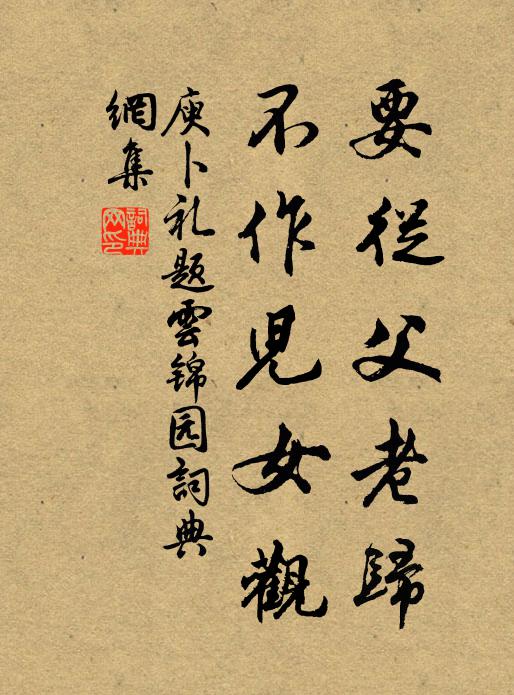 要從父老歸
不作兒女觀
庾卜礼題雲锦园詞典
網集
詞典
网印